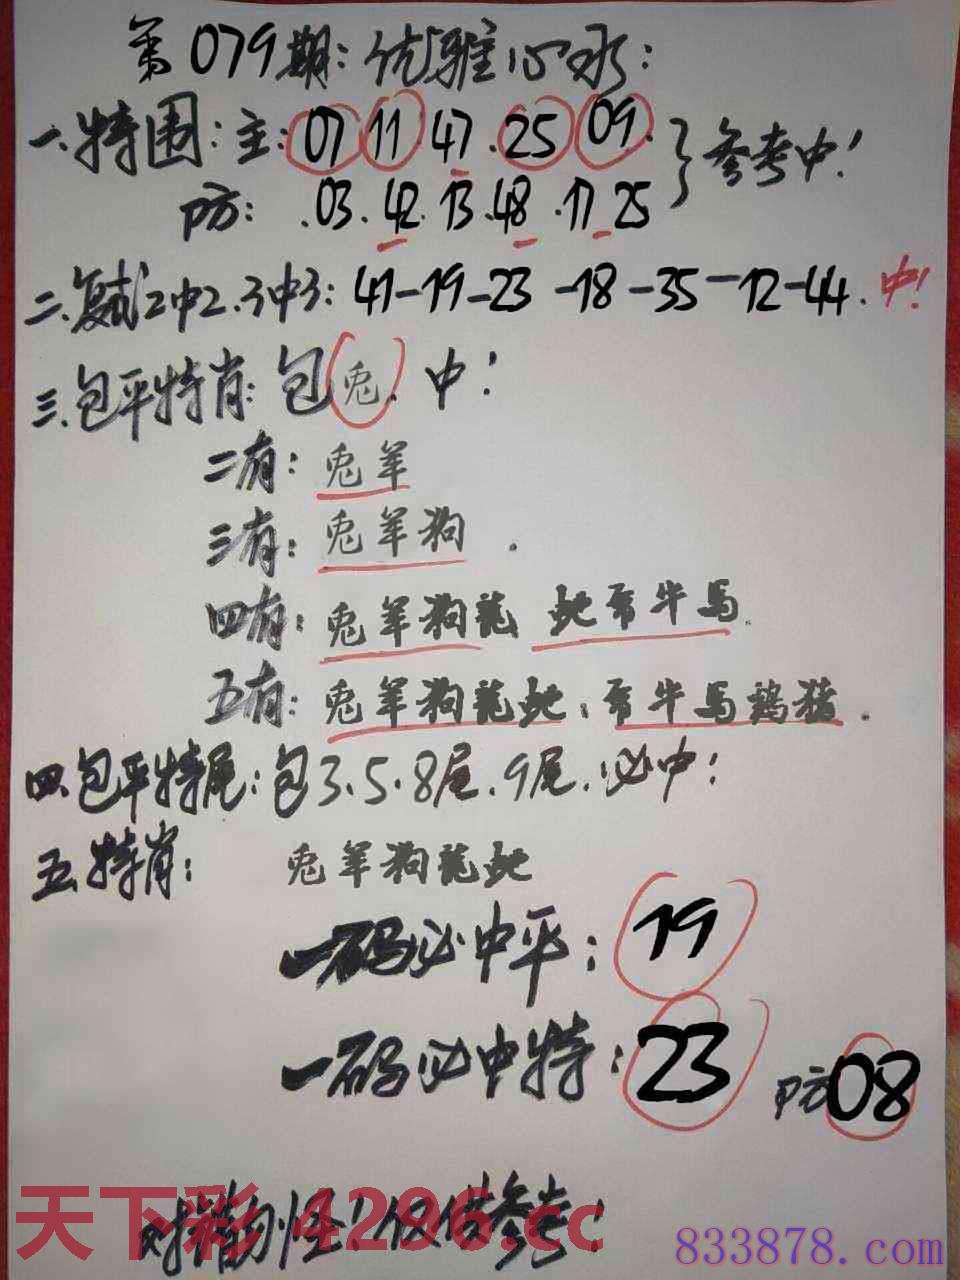 第079期：优雅心水：
一.特围：主：07 11.47.25 09.
防：.03.42.13.48.17 25
参考中！
二.复式2中2.3中3：41-19-23-18-35-12-44.中！
三.包平特肖：包兔.中！
二有：兔羊
三有：兔羊狗.
四有：兔羊狗龍 蛇 牛馬.
五有：兔羊狗龍蛇； 牛馬鷄猪.
四.包平特尾：包3.5.8尾.9尾.必中！
五.特肖：兔羊狗龍蛇
一码必中平：19
一码必中特：23 防08
猜 怪！仅供参考！
天下彩 4296.cc
833878.com